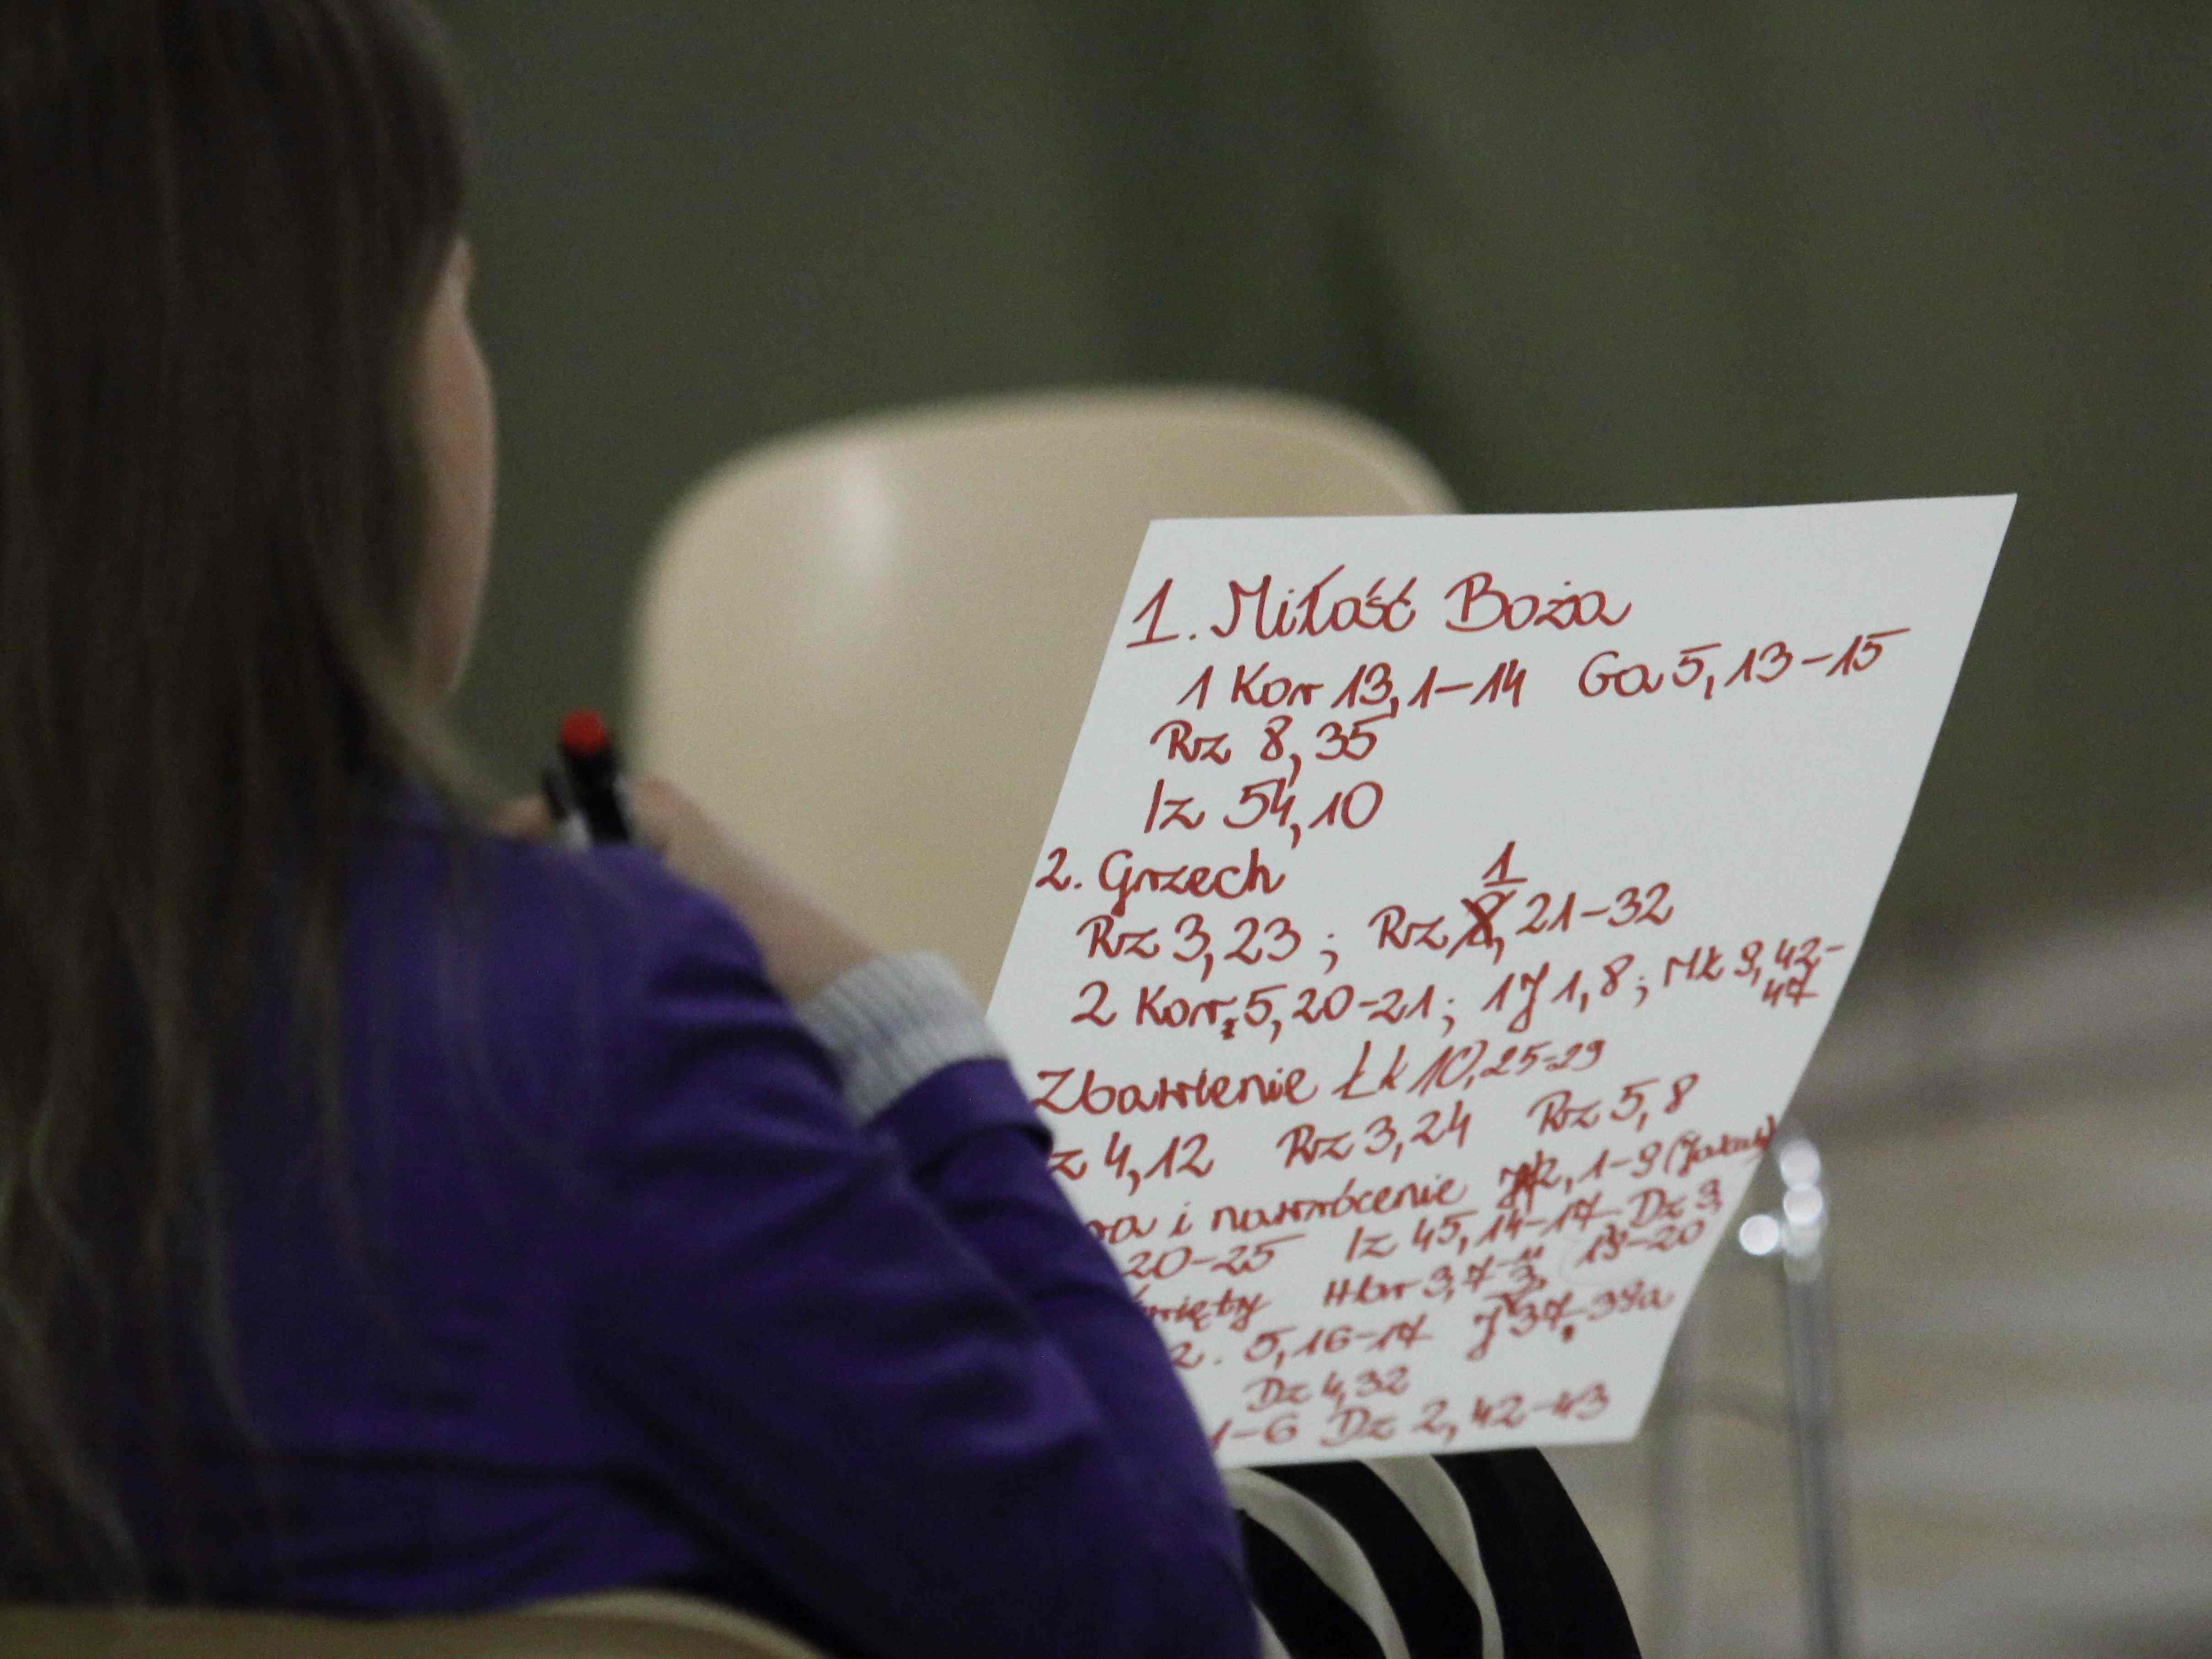 1. Miłość Boża
1 Kor 13,1-14 Ga 5,13-15
Rz 8,35
Iz 54,10
2. Grzech
1
Rz 3,23; Rz 8,21-32
2 Kor 5,20-21; 1J 1,8; Mk 9,42-
47
Zbawienie Łk 10,25-29
z 4,12 Rz 3,24 Rz 5,8
ra i nawrócenie 2,1-9
20-25 Iz 45,14-17 Dz 3
19-20
więty Hbr 3,7-
2. 5,16-17 J 37,39a
Dz 4,32
1-6 Dz 2,42-43